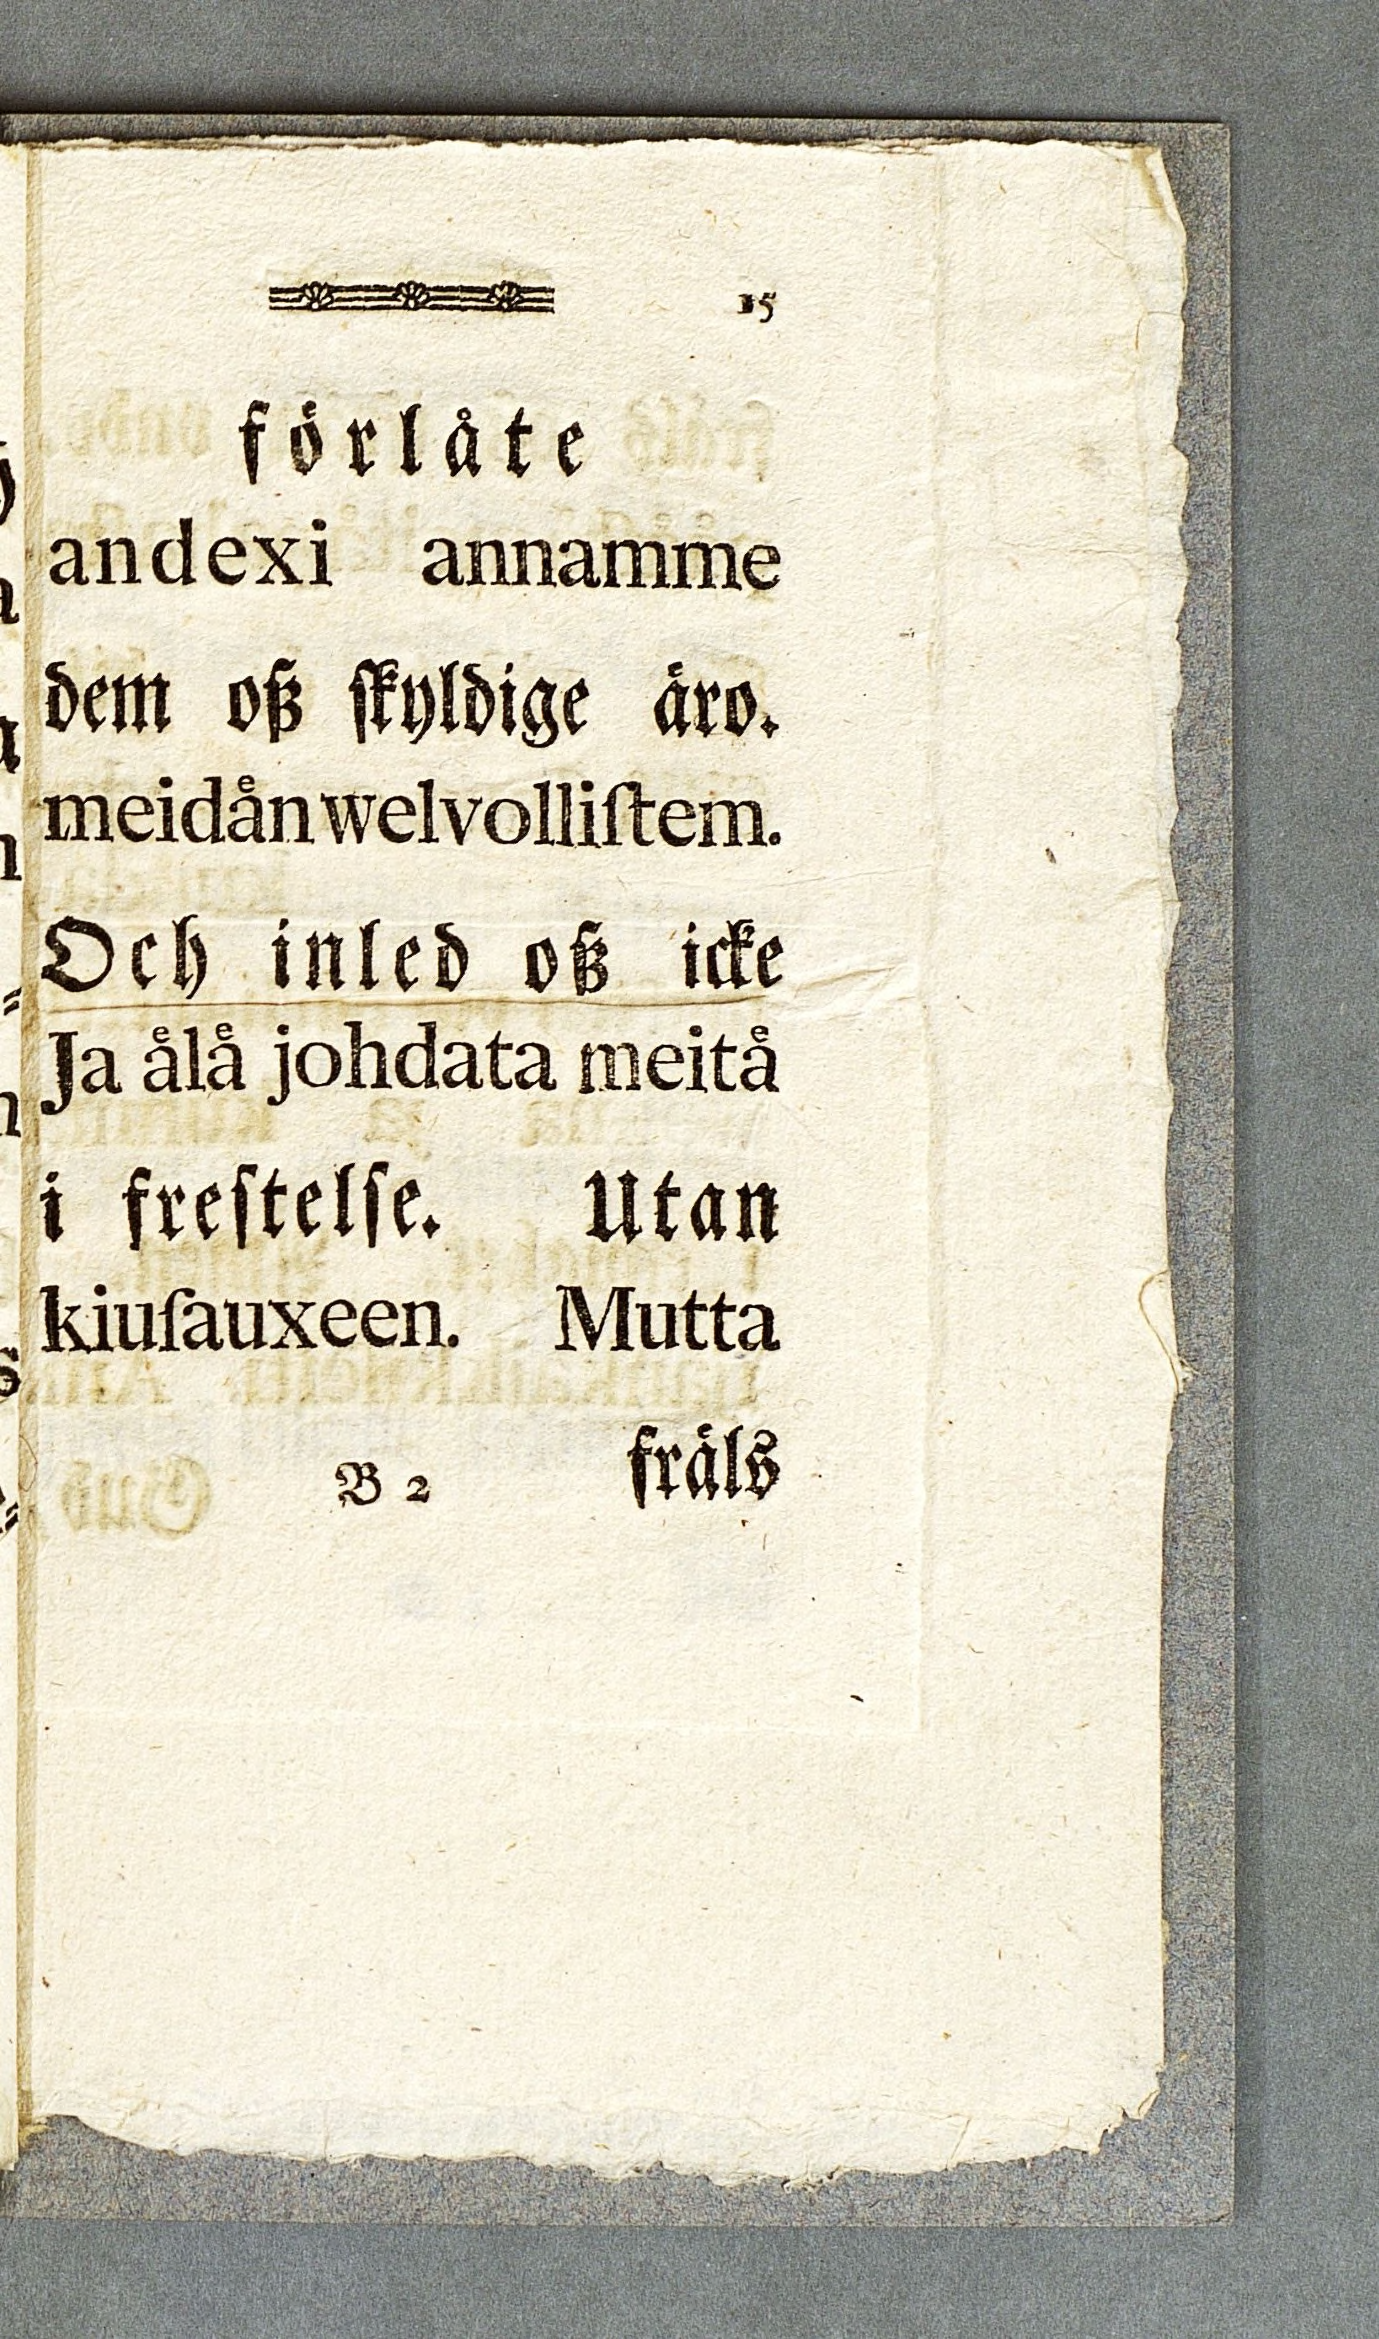 15
förlåte
andexi annamme
dem oß ſkyldige äro.
meidån welvolliſtem.
Och inled oß icke
Ja ålå johdata meitå
i freſtelſe. Utan
kiuſauxeen. Mutta
B 2 fräls